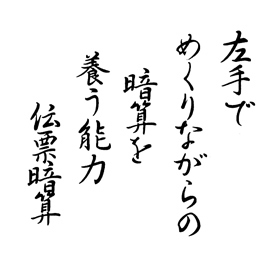 左手で
めくりながらの
暗算を
養う能力
伝票暗算